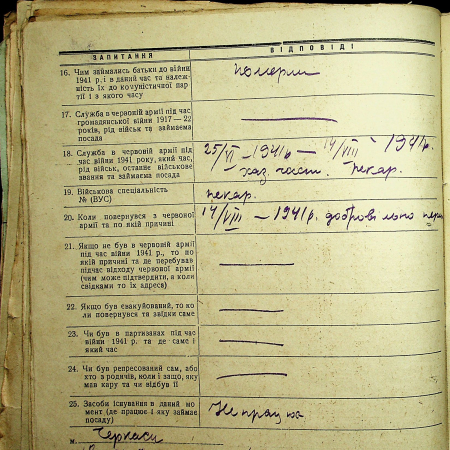 ЗАПИТАННЯ
ВІДПОВІДІ
16. Чим займались батьки до війни
1941 р. і в даний час та належ-
ність їх до комуністичної пар-
тії і з якого часу
померли
17. Служба в червоній армії під час
громадянської війни 1917—22
років, рід військ та займаєма
посада
18. Служба в червоній армії під
час війни 1941 року, який час,
рід військ, останнє військове
звання та займаєма посада
25/VI — 1941р — 14/VIII — 1941р.
хаз. част. пекар.
19. Військова спеціальність
№ (ВУС)
пекар.
20. Коли повернувся з червоної
армії та по якій причині
14/VIII — 1941р. добровільно
21. Якщо не був в червоній армії
під час війни 1941 р., то по
якій причині та де перебував
підчас відходу червоної армії
(чим може підтвердити, а коли
свідками то їх адреса)
22. Якщо був евакуйований, то ко
ли повернувся та звідки саме
23. Чи був в партизанах під час
війни 1941 р. та де саме і
який час
24. Чи був репресований сам, або
хто з родичів, коли і защо, яку
мав кару та чи відбув її
25. Засоби існування в даний мо
мент (де працює і яку займає
посаду)
Не працюю
м. Черкаси